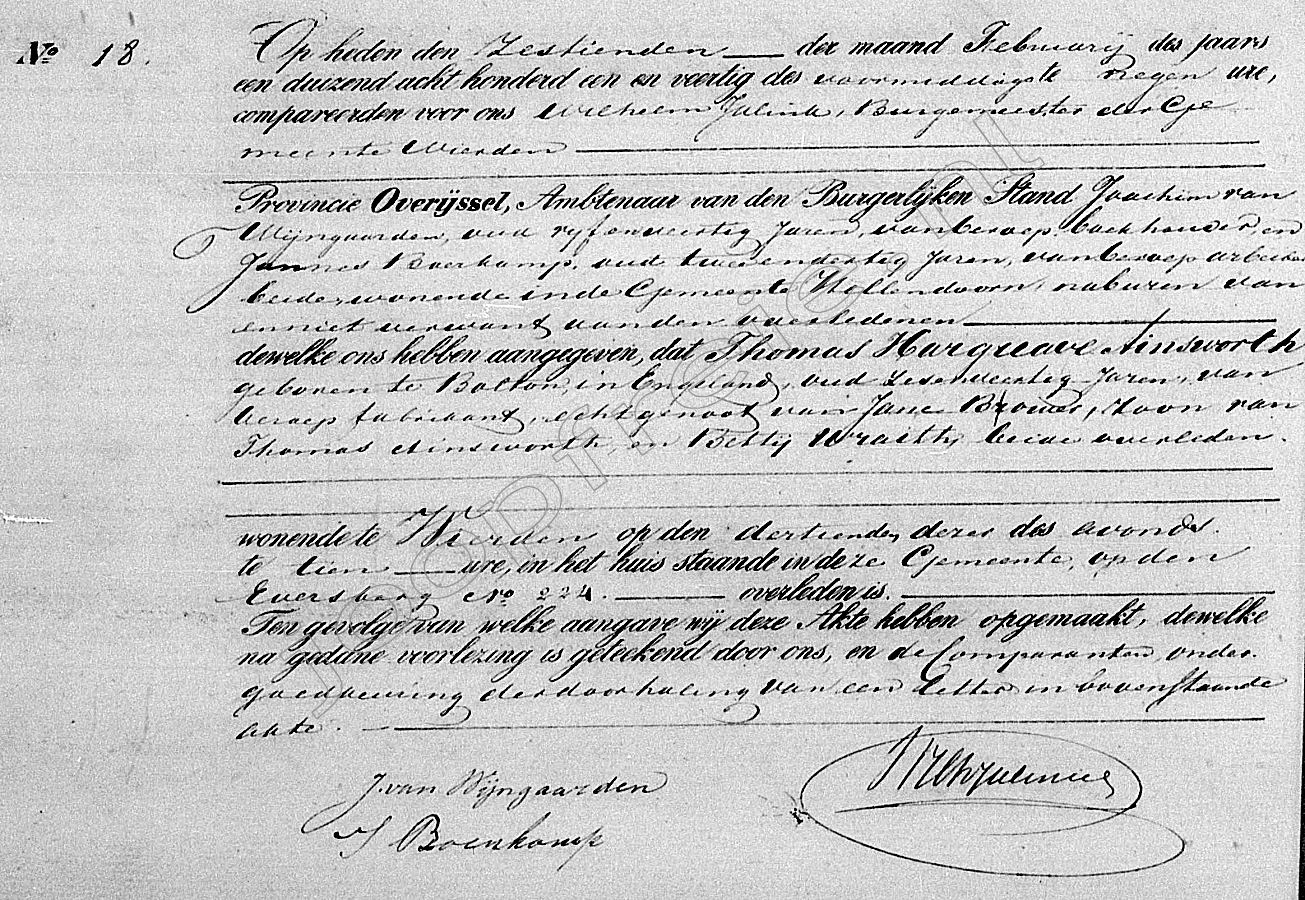 No 18.
Op heden den Zestienden der maand Februarij des jaars
een duizend acht honderd een en veertig des voormiddags te negen ure,
compareerden voor ons Wilhelm Julink, Burgemeester der Ge
meente Wierden
Provincie Overijssel, Ambtenaar van den Burgerlijken Stand Joachim van
Wijngaarden, oud vyfenveertig Jaren, van beroep boekhouder, en
Jannes Boerkamp, oud twee endertig Jaren, van beroep arbeider
beide, wonende in de Gemeente Hellendoorn, naburen van
en niet verwant aan den overledenen
dewelke ons hebben aangegeven, dat Thomas Hargreave Ainsworth
geboren te Bolton, in Engeland, oud Zesenveertig Jaren, van
beroep fabrikant, echtgenoot van Jane Brower, Zoon van
Thomas Ainsworth, en Betty Wraith, beide overleden.
wonende te Wierden op den dertienden dezer des avonds
te tien ure, in het huis staande in deze Gemeente, op den
Eversberg No 224. overleden is.
Ten gevolge van welke aangave wij deze Akte hebben opgemaakt, dewelke
na gedane voorlezing is geteekend door ons, en de Comparanten, onder
goedkeuring der doorhaling van een letter in bovenstaande
akte.
J. van Wijngaarden
J Boenkamp
joopfreije.nl